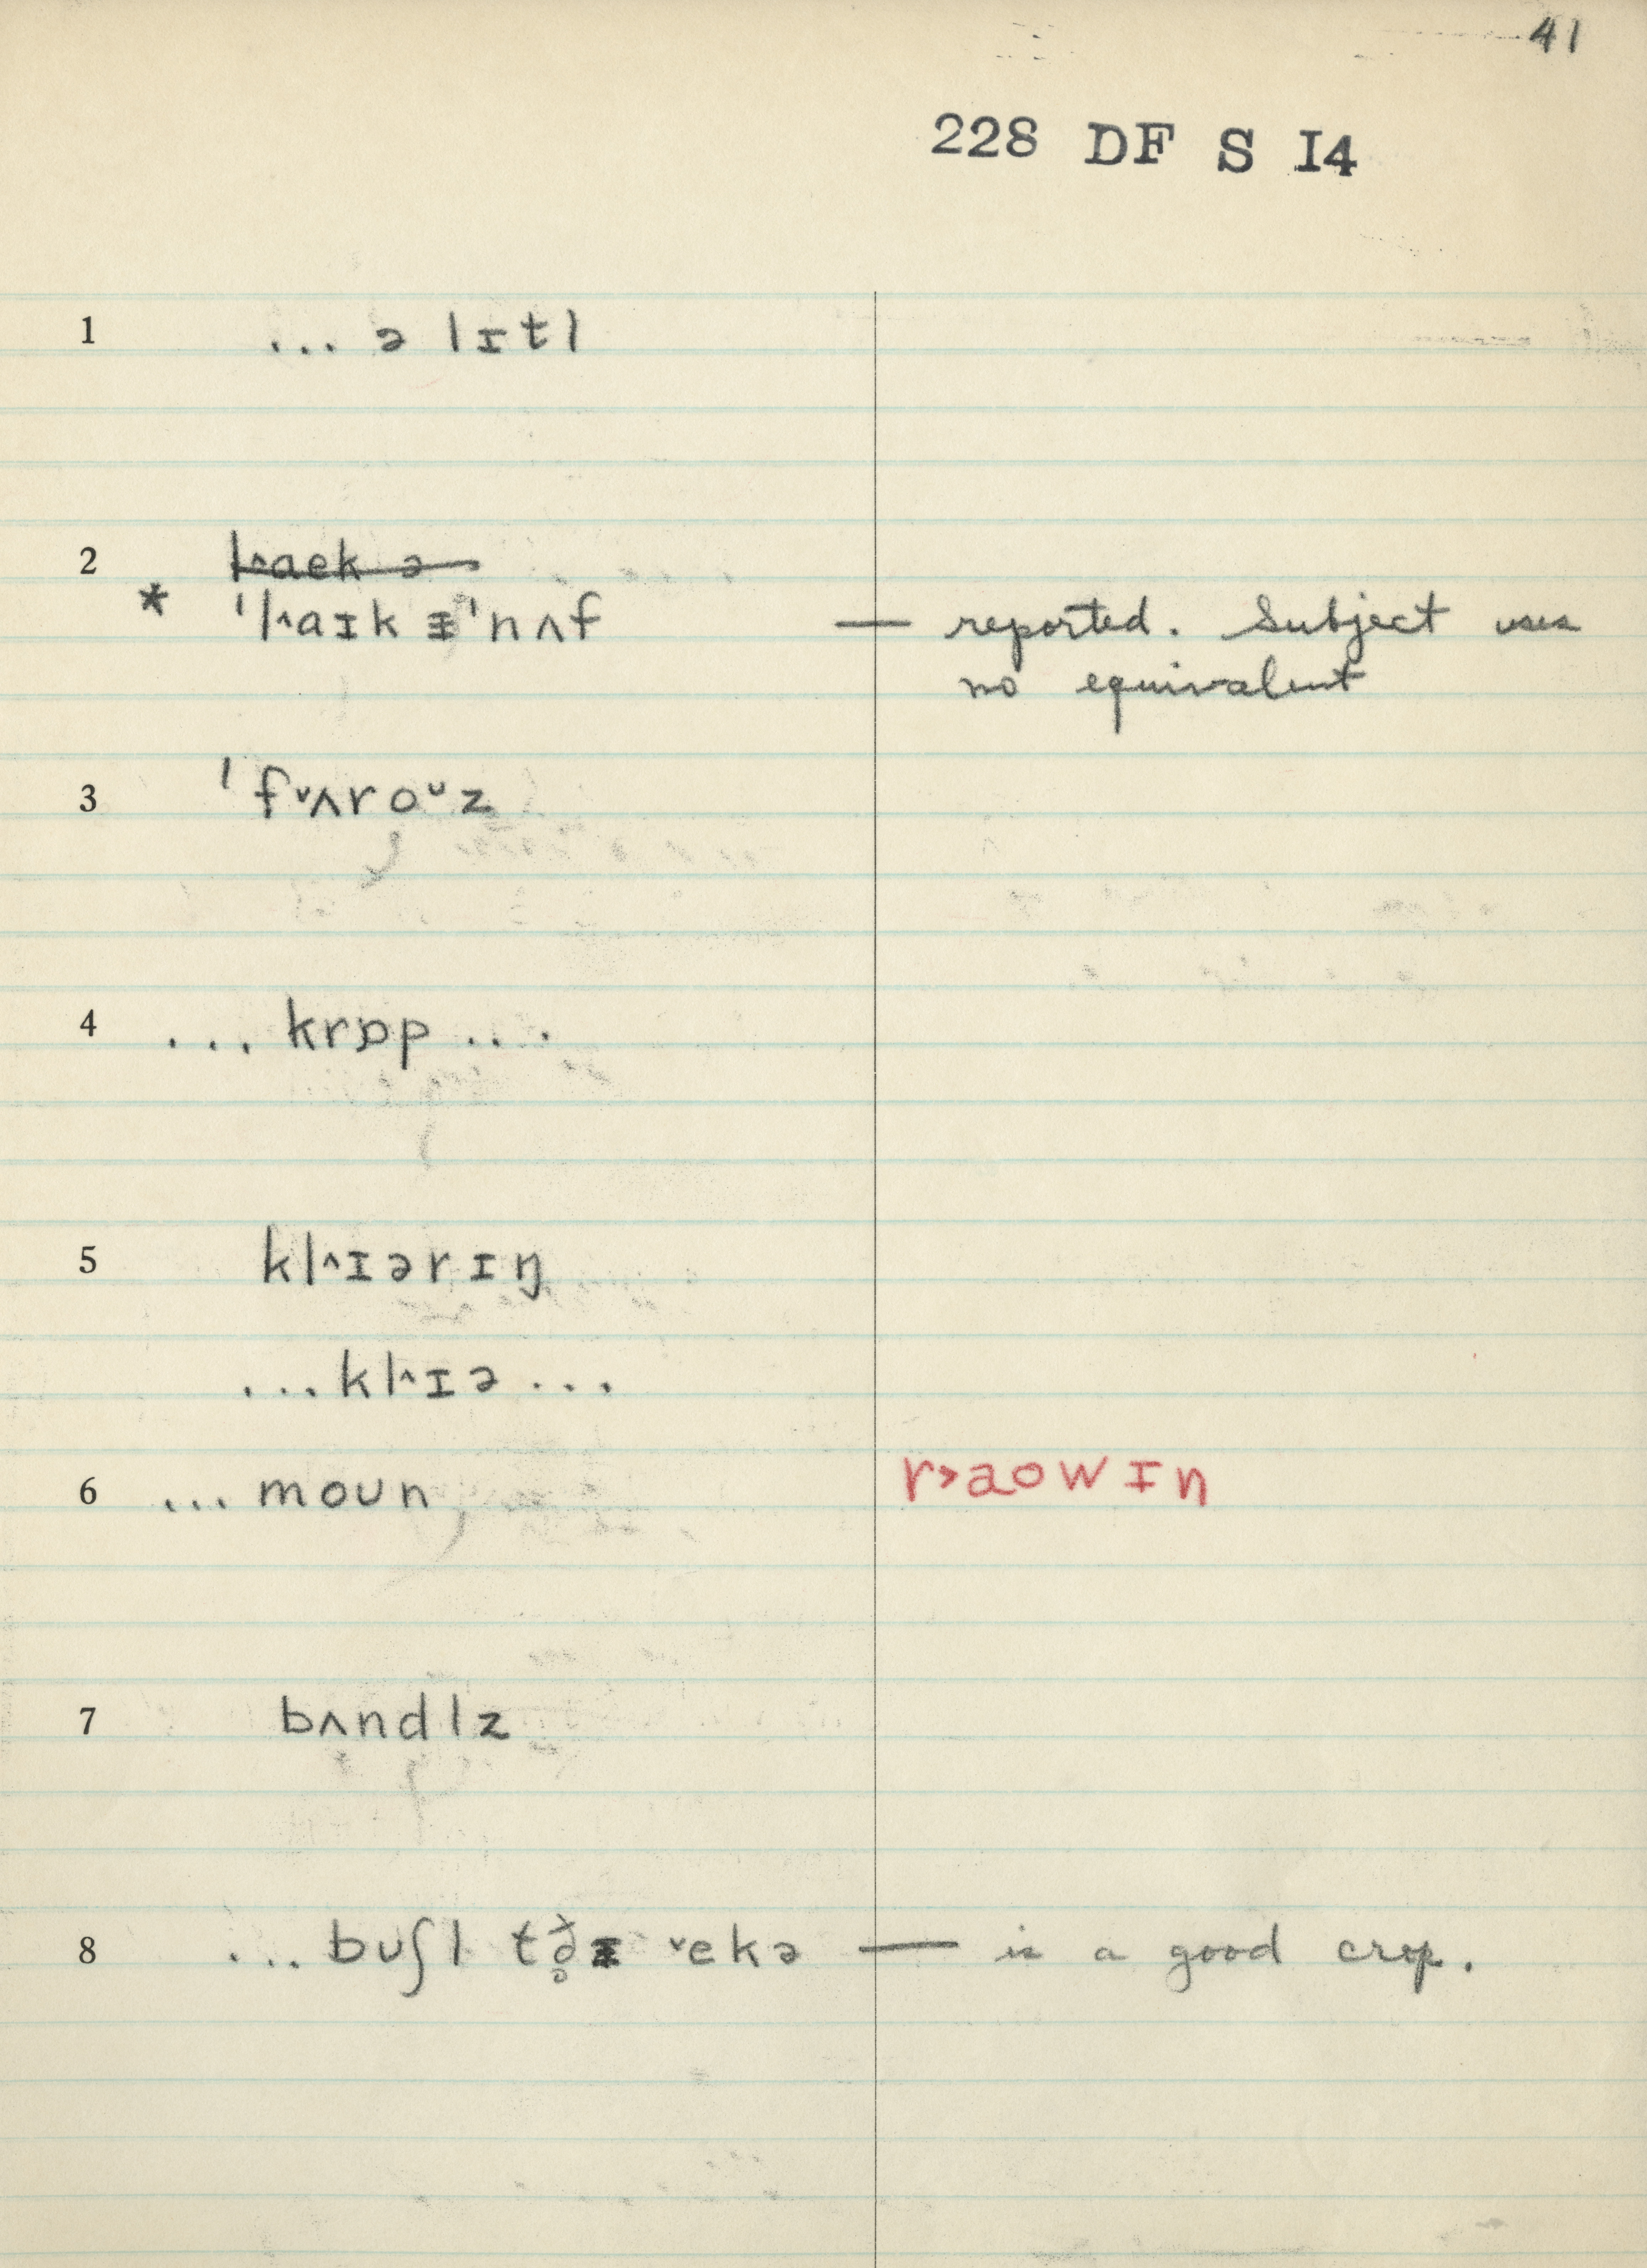 41
228 DF S I4
1 ... ə lɪtl
2 l˄aek ə
* 'l˄aɪk ᵻ'nʌf — reported. Subject uses
no equivalent
3 'f˅ʌroᴜz
4 ... krɒp ...
5 kl˄ɪərɪŋ
...kl˄ɪə...
6 ... moun r˃aowɪn
7 bʌndlz
8 ... buʃl tə̥ ˅ekə — is a good crop.